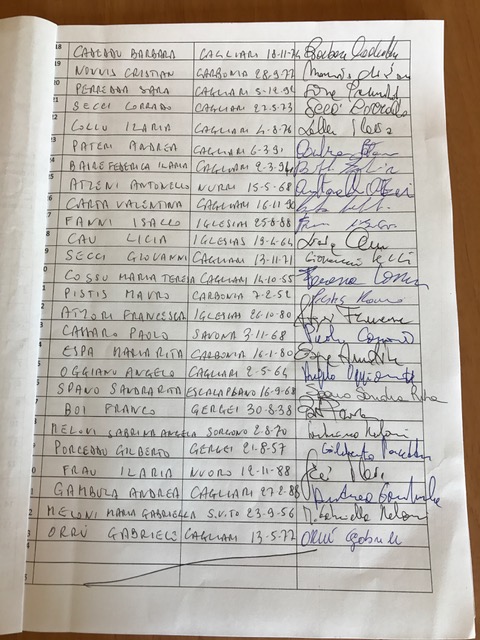 18 CABEDDU BARBARA CAGLIARI 18-11-74
19 NONNIS CRISTIAN CARBONIA 28-9-77
20 PERREDDA SARA CAGLIARI 5-12-92
21 SECCI CORRADO CAGLIARI 27-5-73 Secci Corrado
22 COLLU ILARIA CAGLIARI 4-8-76
23 PATERI ANDREA CAGLIARI 6-3-91
24 BAIRE FEDERICA ILARIA CAGLIARI 2-3-94
25 ATZENI ANTONELLO NURRI 15-5-68 Antonello Atzeni
CARTA VALENTINA CAGLIARI 16-11-90
FANNI ISACCO IGLESIAS 25-8-88
CAU LICIA IGLESIAS 19-4-64
SECCI GIOVANNI CAGLIARI 13-11-71 Giovanni Secci
COSSU MARIA TERESA CAGLIARI 14-10-55
PISTIS MAURO CARBONIA 7-2-52 Pistis Mauro
ATZORI FRANCESCA IGLESIAS 26-10-80
CASSARO PAOLO SAVONA 3-11-68
ESPA MARIA RITA CARBONIA 16-1-80
OGGIANO ANGELO CAGLIARI 2-5-64 Angelo Oggiano
SPANO SANDRA RITA ESCALAPLANO 16-9-68 Spano Sandra Rita
BOI FRANCO GERGEI 30-8-38
MELONI SABRINA ANGELA SORGONO 2-8-70
PORCEDDU GILBERTO GERGEI 21-8-57 Gilberto Porceddu
FRAU ILARIA NUORO 12-11-88
GAMBULA ANDREA CAGLIARI 27-2-88 Andrea Gambula
MELONI MARIA GABRIELLA S.VITO 23-9-56 M. Gabriella Meloni
ORRÙ GABRIELE CAGLIARI 13-5-77 Orrù Gabriele